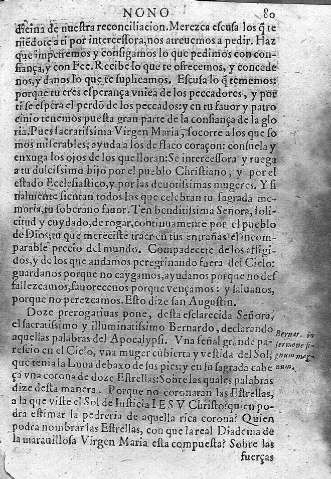 NONO. 80
dicina de nuestra reconciliacion. Merezca escusa los q̃ te
niẽdote a ti por intercessora, nos atreuemos a pedir. Haz
que impetremos y consigamos lo que pedimos con con-
fiança, y con Fee. Recibe lo que te ofrecemos, y concede
nos, y danos lo que te suplicamos. Escusa lo q̃ tememos:
porque tu eres esperança vnica de los peccadores, y por
ti se espera el perdõ de los peccados: y en tu fauor y patro
cinio tenemos puesta gran parte de la confiança de la glo
ria. Pues sacratissima Virgen Maria, socorre a los que so
mos miserables; ayuda a los de flaco coraçon: consuela y
enxuga los ojos de los que lloran: Se intercessora y ruega
a tu dulcissimo hijo por el pueblo Christiano, y por el
estado Ecclesiastico, y por las deuotissimas mugeres. Y fi
nalmente sientan todos los que celebran tu sagrada me-
moria, tu soberano fauor. Ten benditissima Señora, soli-
citud y cuydado, de rogar, continuamente por el pueblo
de Dios, tu que mereciste traer en tus entrañas el incom-
parable precio del mundo. Compadecete de los afligi-
dos, y de los que andamos peregrinando fuera del Cielo:
guardanos porque no caygamos, ayudanos porque no des
fallezcamos, fauorecenos porque vençamos: y saluanos,
porque no perezcamos. Esto dize san Augustin.
Doze prerogatiuas pone, desta esclarecida Señora,
el sacratissimo y illuminatissimo Bernardo, declarando
aquellas palabras del Apocalypsi. Vna señal grande pa-
rescio en el Cielo, vna muger cubierta y vestida del Sol,
que tenia la Luna debaxo de sus pies, y en su sagrada cabe
ça vna corona de doze Estrellas: Sobre las quales palabras
dize desta manera. Porque no coronaran las Estrellas,
a la que viste el Sol de Iusticia IESV Christo? quien po-
dra estimar la pedreria de aquella rica corona? Quien
podra nombrar las Estrellas, con que la real Diadema de
la marauillosa Virgen Maria esta compuesta? Sobre las
fuerças
Bernar. in